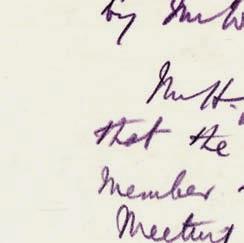 by Mr W
Mr H.
that the
Member
Meeting